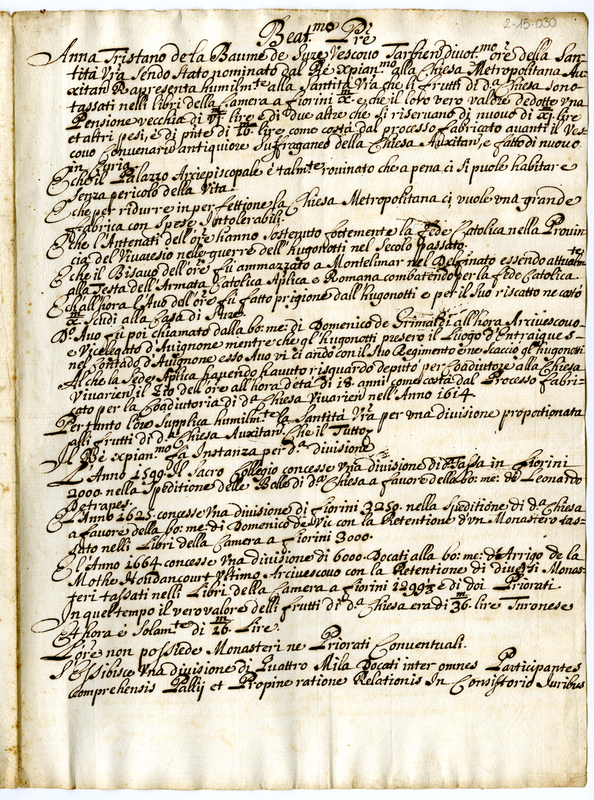 2-15-030
Beat.mo Pre
Anna Tristano de la Baume de Suze Vescovo Tarbien divot.mo ore della San-
tità Vra Sendo Stato nominato dal Re xpian.mo alla Chiesa Metropolitana Au-
xitan Rapresenta humilm.te alla Santità Vra che li frutti di d.a Chiesa sono
tassati nelli libri della Camera a fiorini m/x. e che il loro vero valore dedotte una
Pensione vecchia di m/vj lire e di due altre che si riservano di nuovo di m/xj. lire
et altri pesi, è di pnte di m/26. lire come costa dal processo fabricato avanti il Ves-
covo Convenarum antiquiore Suffraganeo della Chiesa Auxitan, e fatto di nuovo
in Curia.
E che il Palazzo Arciepiscopale è talm.te rouinato che a pena ci si puole habitare
Senza pericolo della Vita.
E che per ridurre in perfettione la Chiesa Metropolitana ci vuole una grande
fabrica con Spese Intolerabili.
E che l'Antenati dell'ore hanno sostenuto fortemente la fede Catolica nella Provin-
cia del Vivaresio nelle guerre dell'Hugonotti nel Secolo passato.
E che il Bisavo dell'ore fu ammazzato a Montelimar nel Delfinato essendo attualm.te
alla Testa dell'Armata Catolica Aplica e Romana combatendo per la fede Catolica.
E ch'all'hora l'Avo del ore fu fatto prigione dall'Hugonotti e per il Suo riscatto ne costò
m/x Scudi alla Casa di Suze.
D.o Avo fu poi chiamato dalla bo: me: di Domenico de Grimaldi all'hora Arcivescovo
e Vicelegato d'Avignone mentre che gl'Hugonotti presero il Luogo d'Entraigues
nel Contado d'Avignone esso Avo vi ci andò con il Suo Regimento e ne scacciò gl'hugonotti
Al che la Sede Aplica havendo havuto risguardo deputò per Coadiutore alla Chiesa
Vivarien il Zio dell'ore all'hora d'età di 18 anni come costa dal Processo fabri-
cato per la Coadiutoria di d.a Chiesa Vivarien nell'Anno 1614.
Pertanto l'ore Supplica humilm.te la Santità Vra per una divisione proportionata
alli frutti di d.a Chiesa Auxitan. Che il Tutto
Il Re xpian.mo fa Instanza per d.a divisione
L'Anno 1599. Il Sacro Collegio concesse una divisione di d.a Tassa in fiorini
2000 nella Speditione delle Bolle di d.a Chiesa a favore della bo: me: de Leonardo
Destrapes.
L'Anno 1625 concesse una divisione di fiorini 3250. nella Speditione di d.a Chiesa
a favore della bo: me: di Domenico de Vic con la Retentione d'un Monastero tas-
sato nelli Libri della Camera a fiorini 3000.
E l'Anno 1664 concesse una divisione di 6000 Docati alla bo: me: d'Arrigo de la
Mothe Houdancourt Ultimo Arcivescovo con la Retentione di diversi Monas-
teri tassati nelli Libri della Camera a fiorini 2299⅓ e di doi Priorati
In quel tempo il vero valore delli frutti di d.a Chiesa era di m/36. lire Turonese
Et hora è Solam.te di m/26. Lire.
L'ore non possiede Monasteri ne Priorati Conventuali.
S'Essibisce una divisione di Quattro Mila Docati inter omnes Participantes
Comprehensis Pallij et Propine ratione Relationis In Consistorio Iuribus